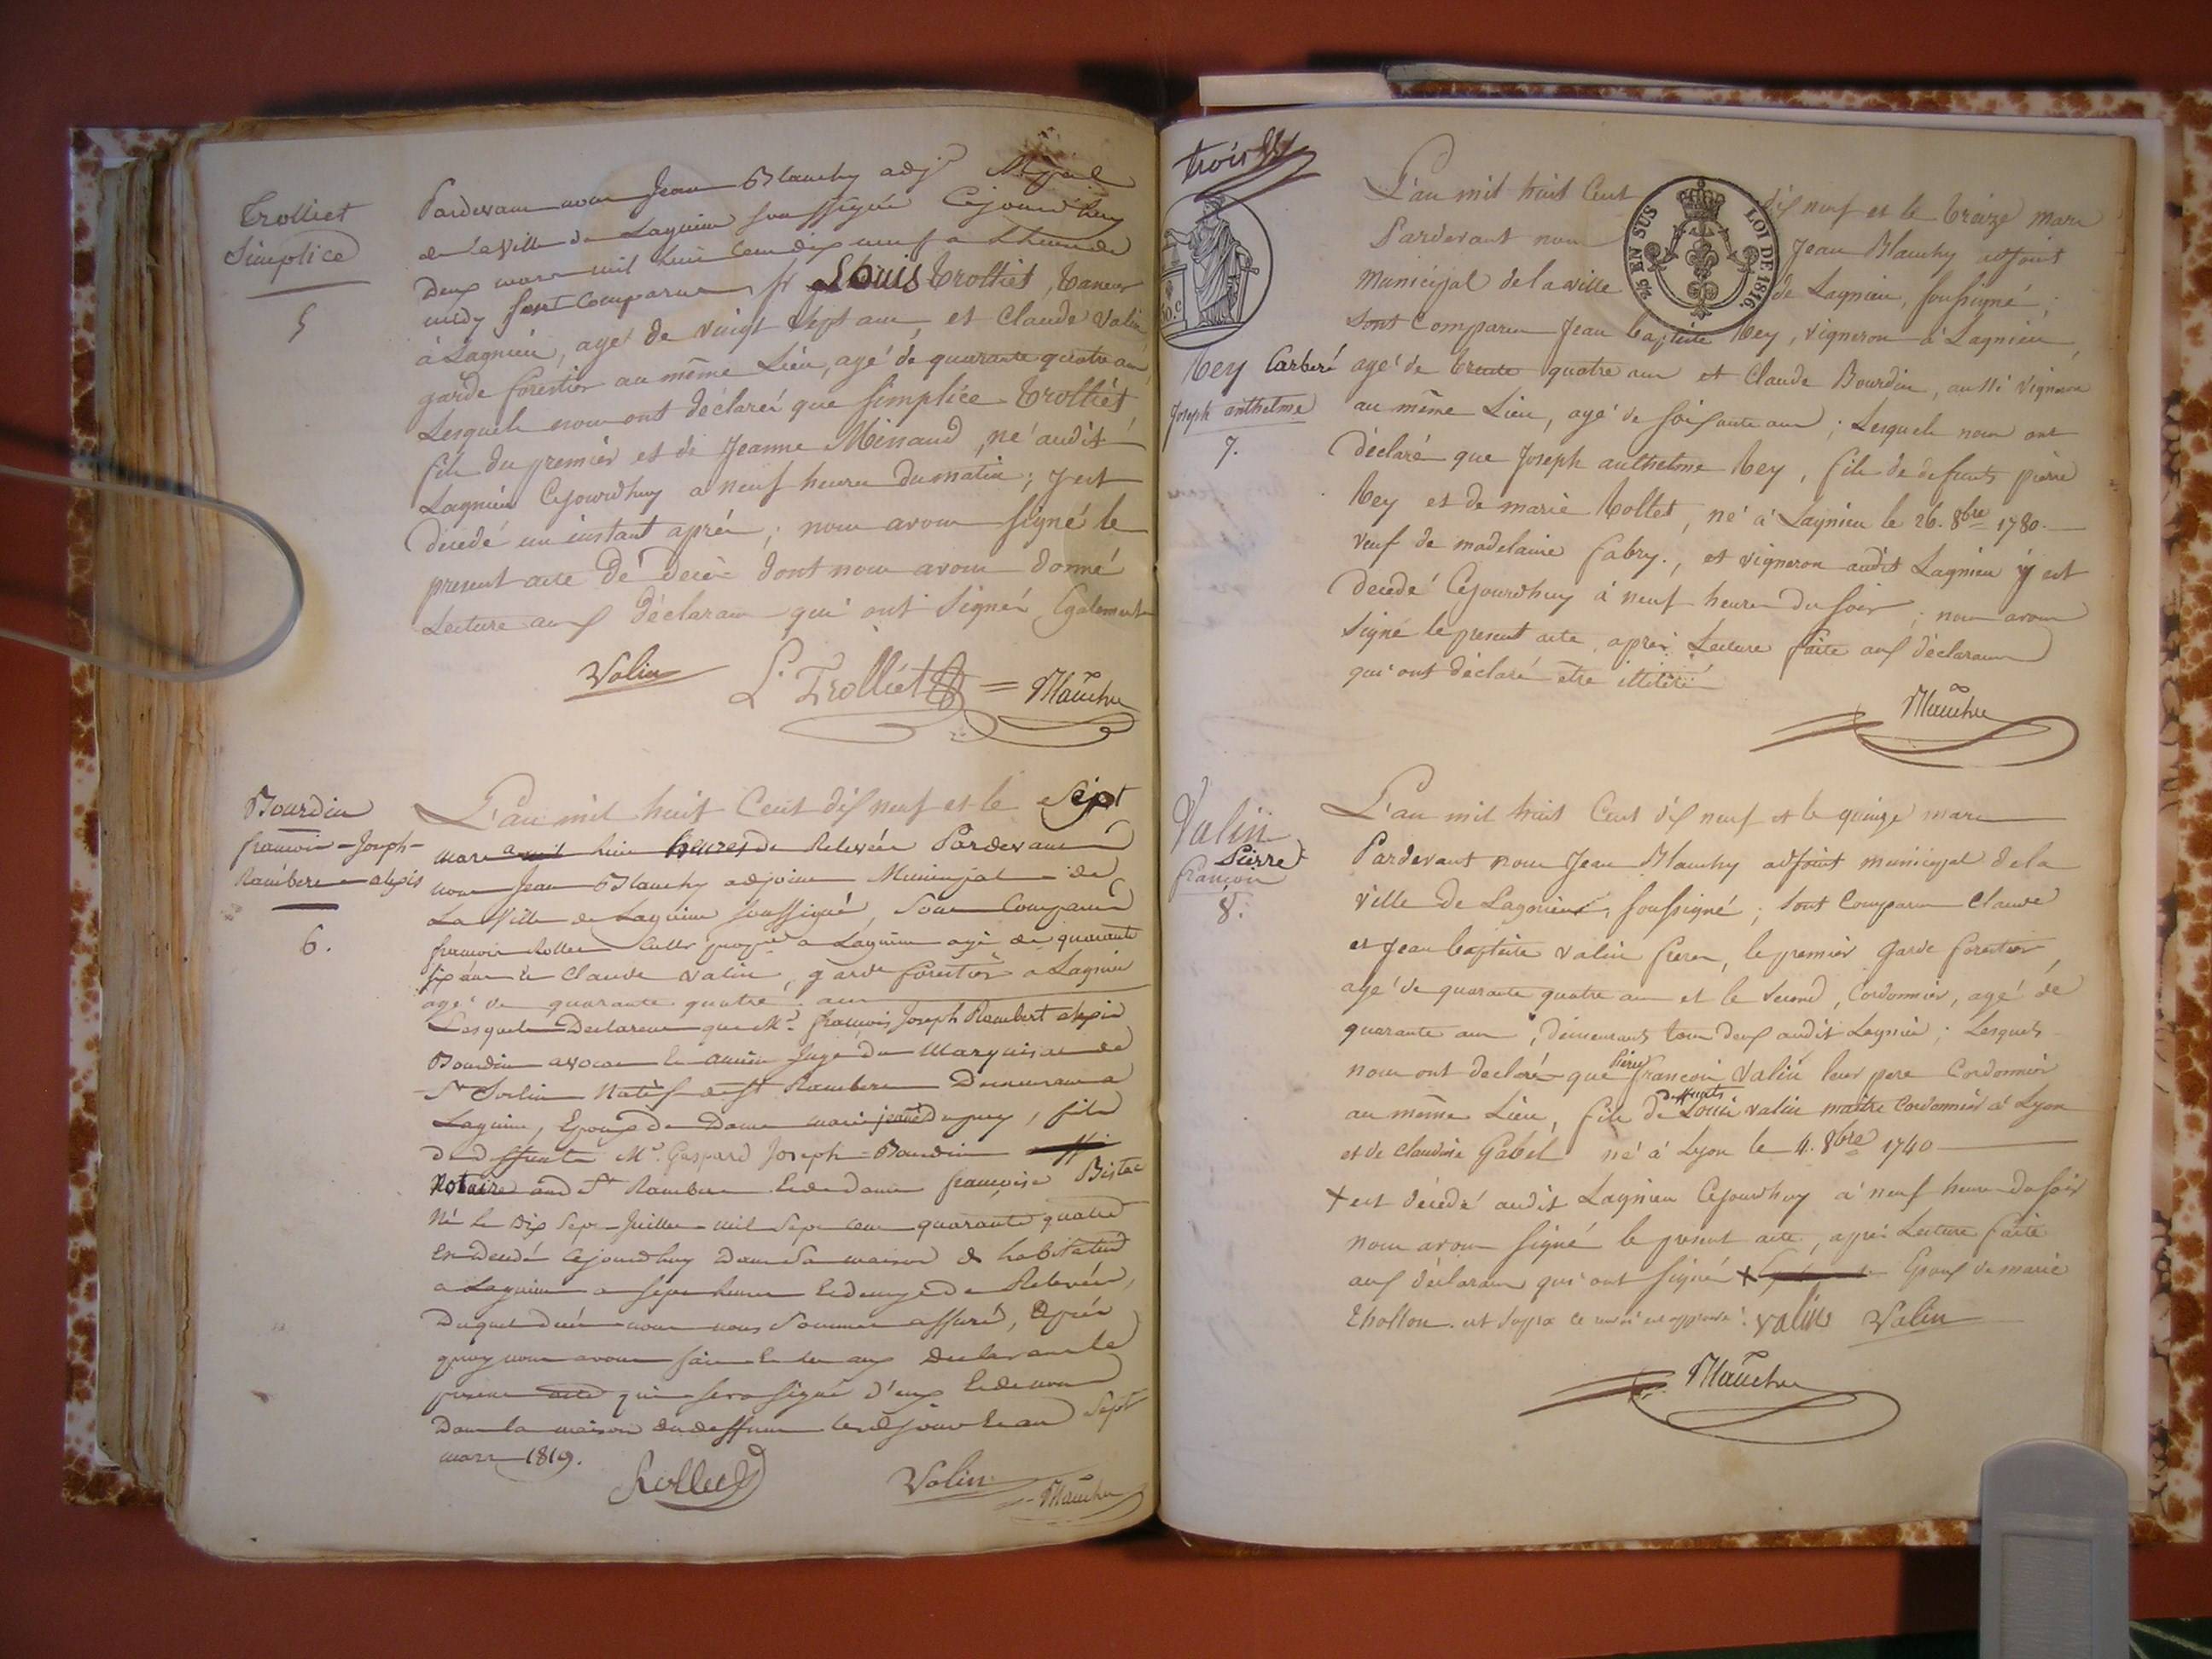 Trolliet
Simplice
5
Pardevant nous Jean Blanchy adj. Mpal
de la Ville de Lagnieu soussigné Cejourd'huy
Deux mars mil huit cent dix neuf a L'heure de
midy sont comparus sr Louis Trolliet, Taneur
à Lagnieu, agé de vingt sept ans, et Claude Valin
garde forestier au même Lieu, agé de quarante quatre ans,
Lesquels nous ont déclaré que Simplice Trolliet
fils du premier et de Jeanne Minaud, né audit
Lagnieu Cejourdhuy a neuf heures du matin; y est
décédé un instant après; nous avons signé le
present acte de décès dont nous avons donné
Lecture aux déclarans qui ont signé Egalement
Valin L. Trolliet Blanchy
Bourdin
françois-Joseph-
Rambert-alexis
6.
L'an mil huit Cent dix neuf et le Sept
mars a huit heures de Relevée Pardevant
nous Jean Blanchy adjoint Municipal de
La Ville de Lagnieu soussigné, Sont Comparus
françois Rollet a Lagnieu agé de quarante
six ans et Claude Valin, garde forestier a Lagnieu
agé de quarante quatre ans
Lesquels Declarent que Mr. françois Joseph Rambert alexis
Bourdin avocat et ancien Juge du Marquisat de
St Sorlin Natif de St Rambert Demeurant a
Lagnieu, Epoux de Dame marie jeanne Dupuy, fils
de deffunts Mr. Gaspard Joseph Bourdin
Notaire aud St Rambert et de dame françoise
Né le Dix Sept Juillet mil Sept cent quarante quatre
Est Decedé Cejourdhuy dans Sa maison d'habitation
a Lagnieu a sept heures et demye de Relevée,
Duquel Décés nous nous Sommes assuré, Après
quoy nous avons fait Lecture aux declarants le
présent acte qui sera signé d'eux et de nous
Dans la maison du deffunt lesd jour et an Sept
mars 1819.
Rollet Valin Blanchy
trois
LOI DE 1816.
EN SUS
Rey Carberé
Joseph anthelme
7.
L'an mil huit Cent dix neuf et le treize mars
Pardevant nous Jean Blanchy adjoint
Municipal de la ville de Lagnieu, soussigné;
sont Comparus Jean baptiste Rey, vigneron à Lagnieu,
agé de trente quatre ans et Claude Bourdin, aussi Vigneron
au même Lieu, agé de soixante ans; Lesquels nous ont
déclaré que Joseph anthelme Rey, fils de defunts pierre
Rey et de marie Rollet, né à Lagnieu le 26. 8bre 1780.
veuf de madelaine fabry., et vigneron audit Lagnieu y est
décédé Cejourdhuy à neuf heures du soir; nous avons
signé le present acte, après Lecture faite aux déclarans
qui ont déclaré être illitéré
Blanchy
Valin
Pierre
françois
8.
L'an mil huit Cent dix neuf et le quinze mars
Pardevant nous Jean Blanchy adjoint municipal de la
ville de Lagnieu, soussigné; sont Comparus Claude
et Jean baptiste Valin freres, le premier Garde forestier,
agé de quarante quatre ans et le Second, Cordonnier, agé de
quarante ans, demeurants tous deux audit Lagnieu; Lesquels
nous ont declaré que Pierre françois Valin leur pere Cordonnier
au même Lieu, fils de deffunts Louis Valin maitre Cordonnier à Lyon
et de Claudine Gabet né à Lyon le 4. 8bre 1740
+ est décédé audit Lagnieu Cejourdhuy à neuf heures du soir
nous avons signé le present acte, après Lecture faite
aux déclarans qui ont signé + Epoux de marie
Thollon. et Sugra ce renvoi est approuvé. Valin Valin
Blanchy